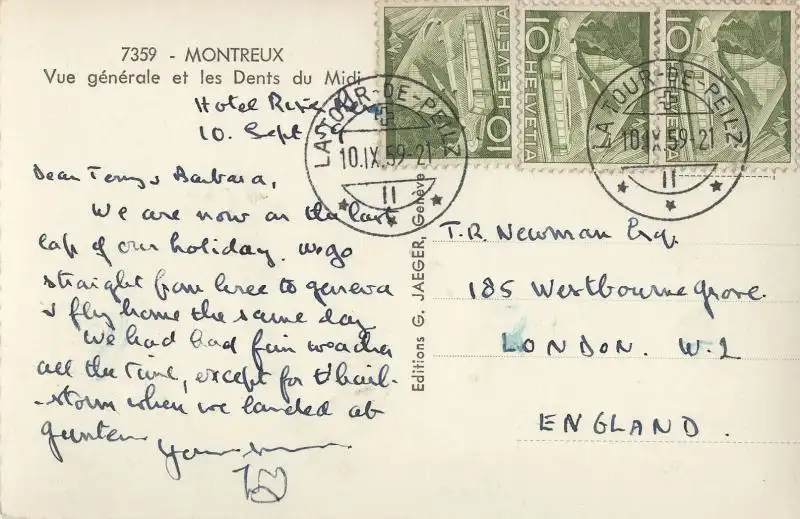 7359 - MONTREUX
Vue générale et les Dents du Midi
Hotel Rive
10. Sept
Dear Terry & Barbara,
We are now on the last
lap of our holiday. We go
straight from here to geneva
& fly home the same day
We had had fair weather
all the time, except for
-storm when we landed at
gunten
Yours
HELVETIA 10
10 HELVETIA
10 HELVETIA
LA TOUR-DE-PEILZ
10.IX.59-21
II
LA TOUR-DE-PEILZ
10.IX.59-21
II
Editions G. JAEGER, Genève
T.R. Newman Esq.
185 Westbourne Grove.
LONDON. W.2
ENGLAND.